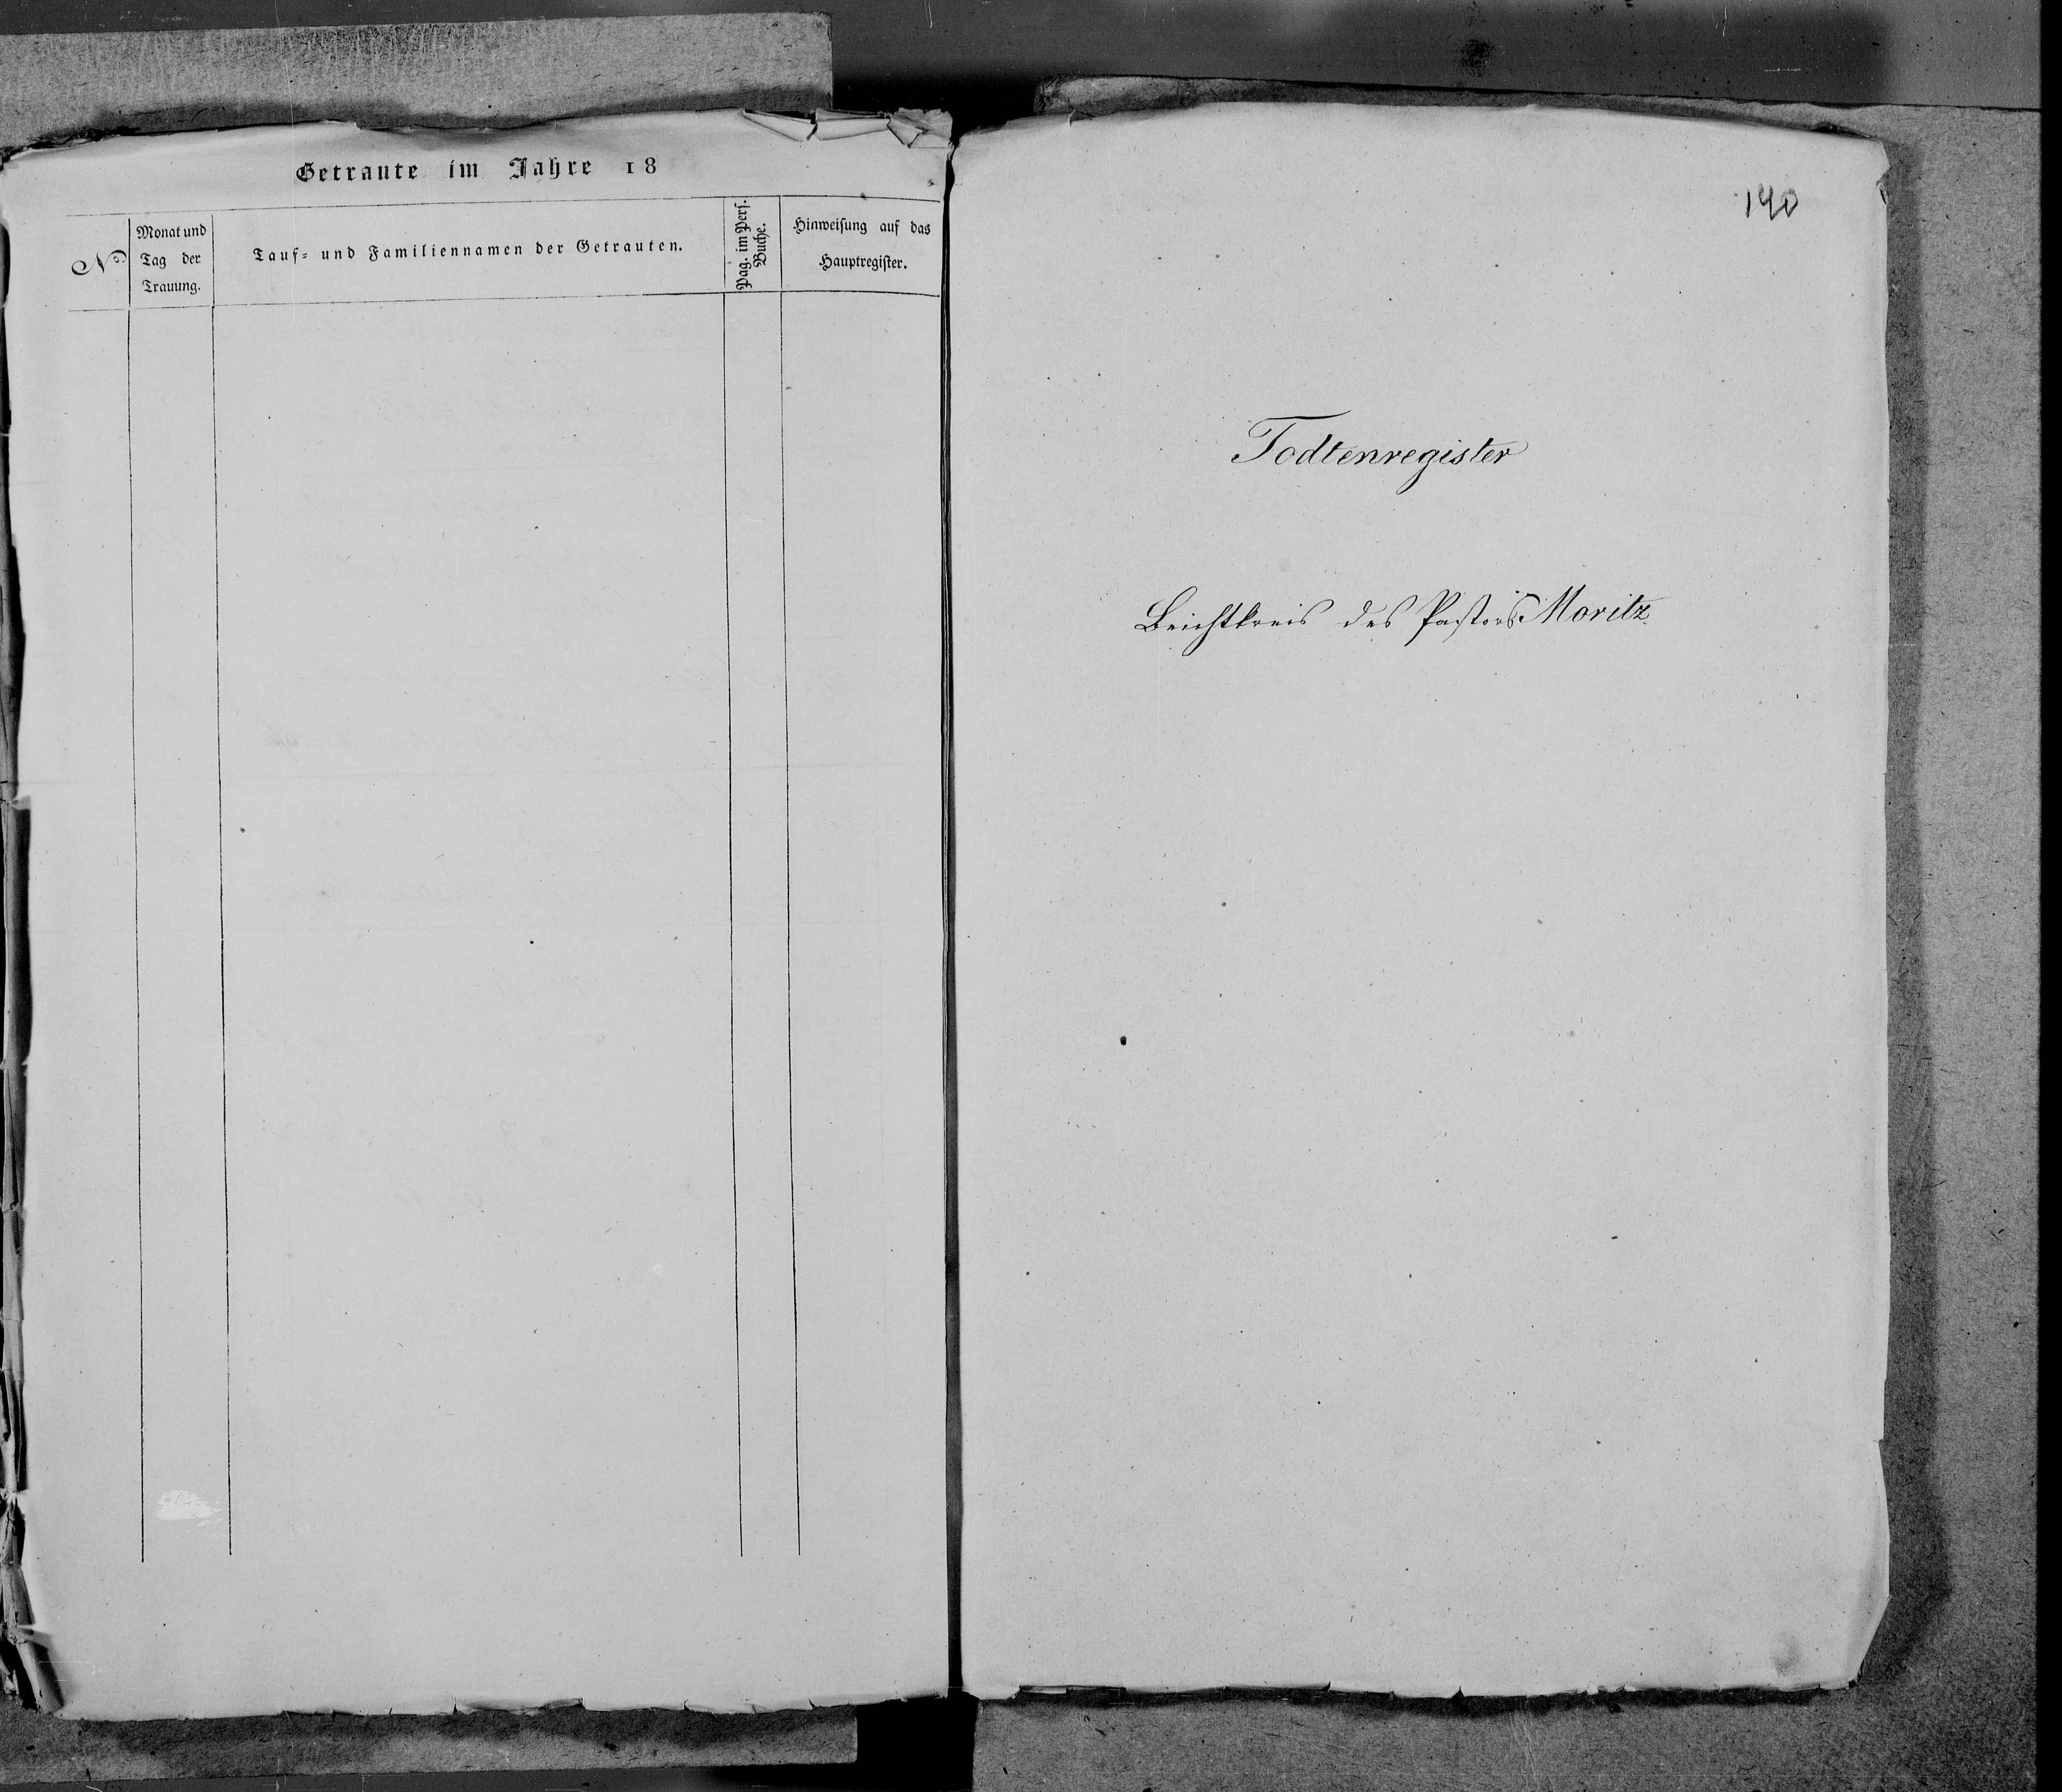 Getraute im Jahre 18
No
Monat und
Tag der
Trauung.
Tauf- und Familiennamen der Getrauten.
Pag. im Pers.
Buche.
Hinweisung auf das
Hauptregister.
140
Todtenregister
Beichtkreis des Pastors Moritz